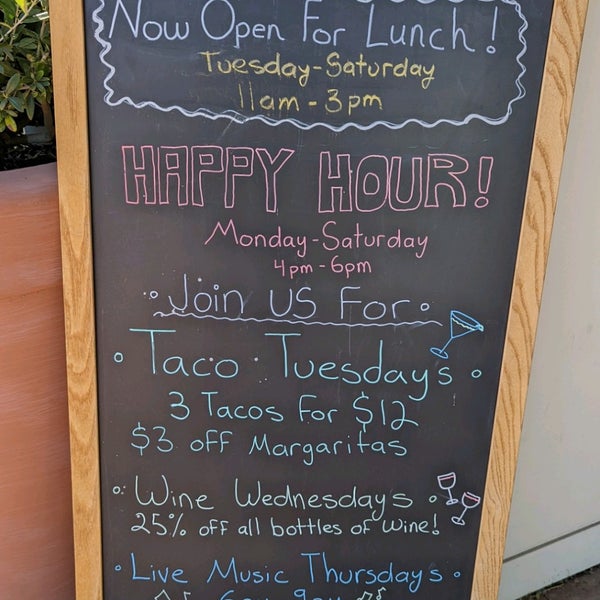 Now Open For Lunch!
Tuesday-Saturday
11am - 3pm
HAPPY HOUR!
Monday-Saturday
4pm - 6pm
Join us For
Taco Tuesday's
3 Tacos For $12
$3 off Margaritas
Wine Wednesdays
25% off all bottles of wine!
Live Music Thursday's
6pm - 9pm